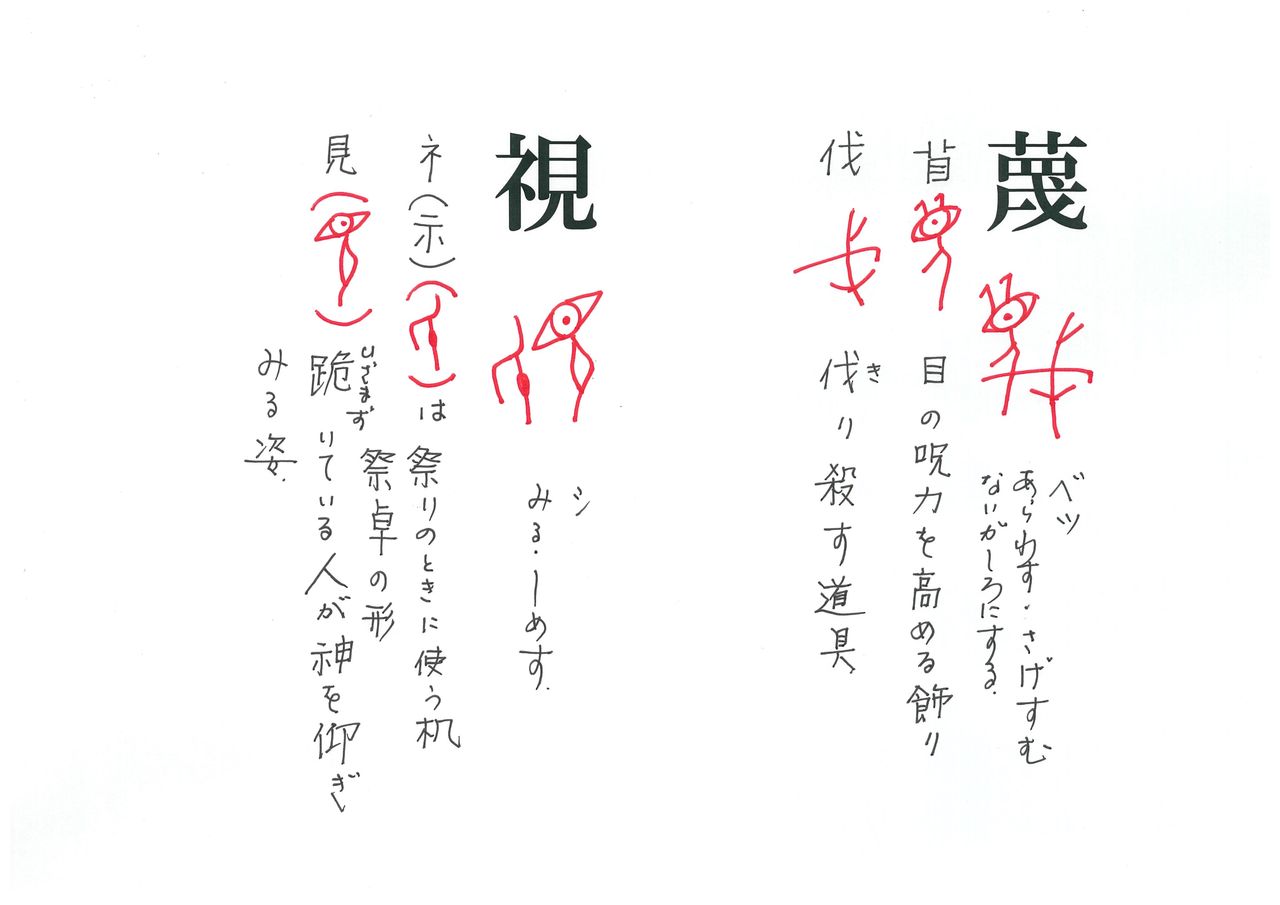 蔑
ベツ
あらわす・さげすむ
ないがしろにする。
苜 目の呪力を高める飾り
伐 伐り殺す道具。
き
視
シ
みる・しめす。
ネ(示)( )は祭りのときに使う机
祭卓の形
見( )跪いている人が神を仰ぎ
ひざまず
みる姿。